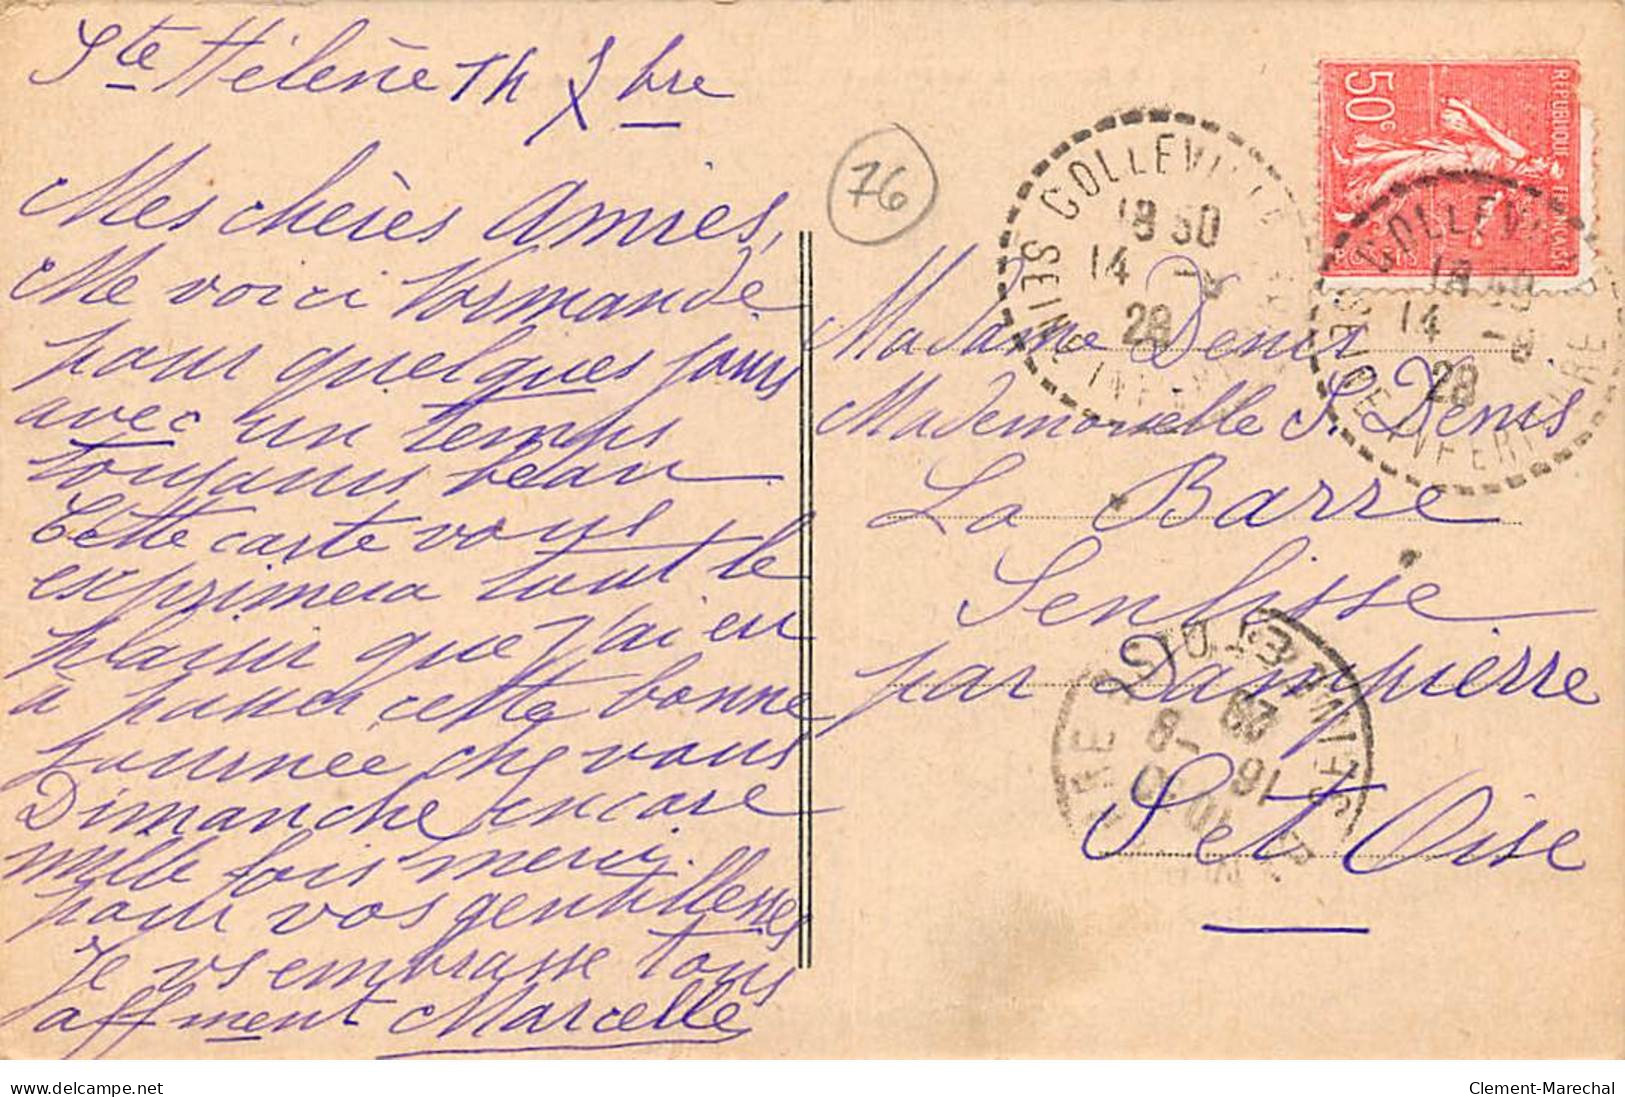 Ste Hélène
bre
Mes chères Amies,
Me voici Normande
pour quelques jours
avec un temps
toujours beau
Cette carte vous
exprimera tout le
plaisir que j'ai eu
à passer cette bonne
journée chez vous
Dimanche encore
mille fois merci
pour vos gentillesses
Je vs embrasse tous
affment Marcelle
76
COLLEVILLE
18 30
14 -8
28
SEINE INFERIEURE
50c
REPUBLIQUE FRANCAISE
POSTES
COLLEV
18 30
14 -8
28
SEINE INFERIEURE
Madame Denis
Mademoiselle S. Denis
La Barre
Senlisse
par Dampierre
S et Oise
16 -8
28
10
Delcampe.net
Clement-Marechal